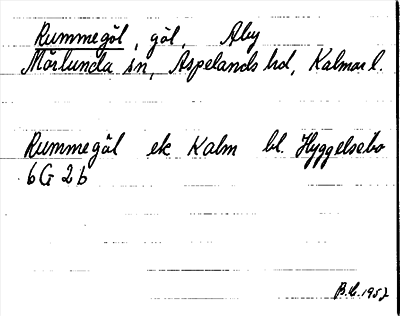 Rummegöl, göl, Åby
Mörlunda sn, Aspelands hd, Kalmar l.
Rummegöl ek Kalm bl. Hyggelsebo
6G 2b
B.L. 1957